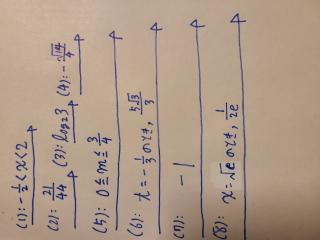 (1): -1/2 < x < 2
(2): 21/44 (3): log₂3 (4): -√14/4
(5): 0 ≤ m ≤ 3/4
(6): t = -1/3 のとき, 5√3/3
(7): -1
(8): x = √e のとき, 1/2e